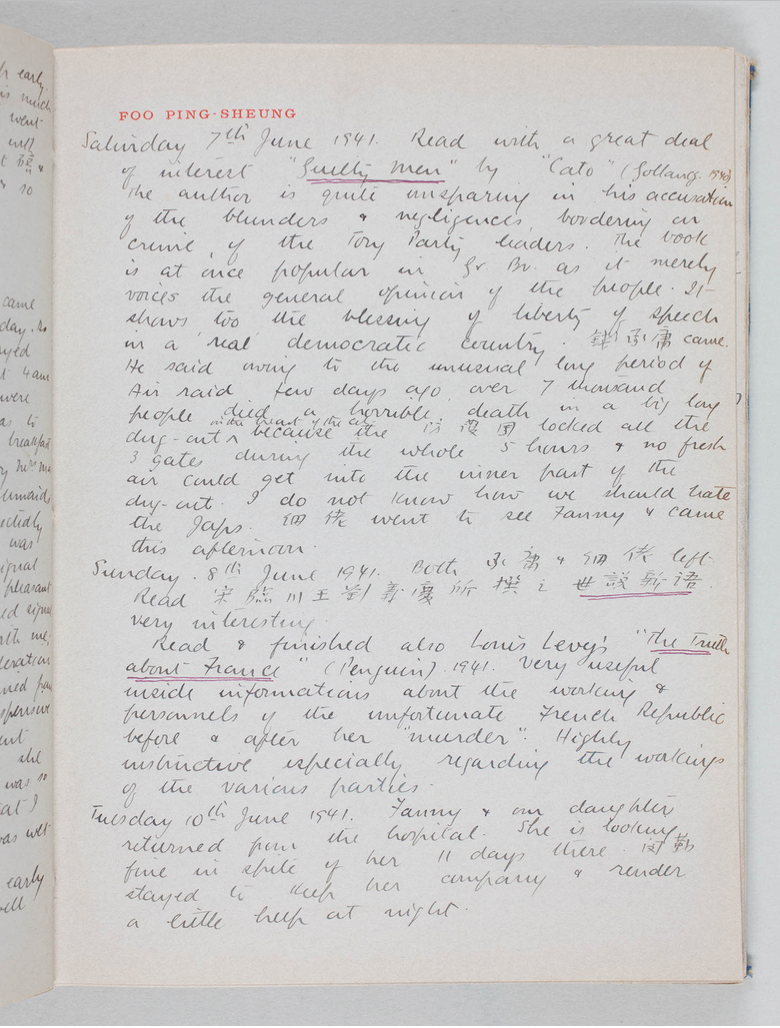 FOO PING-SHEUNG
Saturday 7th June 1941. Read with a great deal
of interest "Guilty Men" by "Cato" (Gollanz. 1940)
The author is quite unsparing in his accusation
of the blunders & negligences, bordering on
crime, of the Tory Party leaders. The book
is at once popular in Gr. Br. as it merely
voices the general opinion of the people. It
shows too the blessing of liberty of speech
in a real democratic country. 承庸 came.
He said owing to the unusual long period of
Air raid few days ago, over 7 thousand
people died a horrible death in a big long
dug-out in the heart of the city because the 防護團 locked all the
3 gates during the whole 5 hours & no fresh
air could get into the inner part of the
dug-out. I do not know how we should hate
the Japs. went to see Fanny & came
this afternoon.
Sunday. 8th June 1941. Both 承庸 & left.
Read 宋臨川王劉義慶所撰之世說新語.
very interesting.
Read & finished also Louis Levy's "The Truth
about France" (Penguin). 1941. Very useful
inside informations about the working &
personnels of the unfortunate French Republic
before & after her "murder". Highly
instructive especially regarding the workings
of the various parties.
Tuesday 10th June 1941. Fanny & our daughter
returned from the hospital. She is looking
fine in spite of her 11 days there.
stayed to keep her company & render
a little help at night.
early
is much
went
will
& so
came
day. So
yed
t 4 am
were
as to
breakfast
ectedly
was
ignal
pleasant
ed signal
rth me,
ent
she
was so
at I
was wet
early
ell